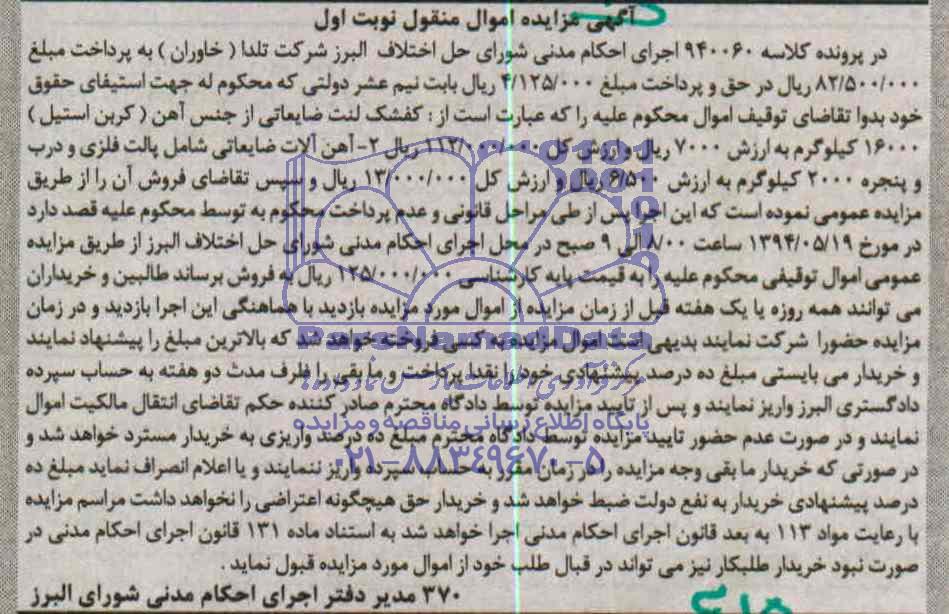 آگهی مزایده اموال منقول نوبت اول
در پرونده کلاسه ۹۴۰۰۶۰ اجرای احکام مدنی شورای حل اختلاف البرز شرکت تلدا ( خاوران ) به پرداخت مبلغ
۸۲/۵۰۰/۰۰۰ ریال در حق و پرداخت مبلغ ۴/۱۲۵/۰۰۰ ریال بابت نیم عشر دولتی که محکوم له جهت استیفای حقوق
خود بدوا تقاضای توقیف اموال محکوم علیه را که عبارت است از : کفشک لنت ضایعاتی از جنس آهن ( کربن استیل )
۱۶۰۰۰ کیلوگرم به ارزش ۷۰۰۰ ریال و ارزش کل ۱۱۲/۰۰۰/۰۰۰ ریال ۲- آهن آلات ضایعاتی شامل پالت فلزی و درب
و پنجره ۲۰۰۰ کیلوگرم به ارزش ۶/۵۰۰ ریال و ارزش کل ۱۳/۰۰۰/۰۰۰ ریال و سپس تقاضای فروش آن را از طریق
مزایده عمومی نموده است که این اجرا پس از طی مراحل قانونی و عدم پرداخت محکوم به توسط محکوم علیه قصد دارد
در مورخ ۱۳۹۴/۰۵/۱۹ ساعت ۸/۰۰ الی ۹ صبح در محل اجرای احکام مدنی شورای حل اختلاف البرز از طریق مزایده
عمومی اموال توقیفی محکوم علیه را به قیمت پایه کارشناسی ۱۲۵/۰۰۰/۰۰۰ ریال به فروش برساند طالبین و خریداران
می توانند همه روزه یا یک هفته قبل از زمان مزایده از اموال مورد مزایده بازدید با هماهنگی این اجرا بازدید و در زمان
مزایده حضورا شرکت نمایند بدیهی است اموال مزایده به کسی فروخته خواهد شد که بالاترین مبلغ را پیشنهاد نمایند
و خریدار می بایستی مبلغ ده درصد پیشنهادی خود را نقدا پرداخت و ما بقی را ظرف مدت دو هفته به حساب سپرده
دادگستری البرز واریز نمایند و پس از تایید مزایده توسط دادگاه محترم صادر کننده حکم تقاضای انتقال مالکیت اموال
نمایند و در صورت عدم حضور تایید مزایده توسط دادگاه محترم مبلغ ده درصد واریزی به خریدار مسترد خواهد شد و
در صورتی که خریدار ما بقی وجه مزایده را در زمان مقرر به حساب سپرده واریز ننمایند و یا اعلام انصراف نماید مبلغ ده
درصد پیشنهادی خریدار به نفع دولت ضبط خواهد شد و خریدار حق هیچگونه اعتراضی را نخواهد داشت مراسم مزایده
با رعایت مواد ۱۱۳ به بعد قانون اجرای احکام مدنی اجرا خواهد شد به استناد ماده ۱۳۱ قانون اجرای احکام مدنی در
صورت نبود خریدار طلبکار نیز می تواند در قبال طلب خود از اموال مورد مزایده قبول نماید .
۳۷۰ مدیر دفتر اجرای احکام مدنی شورای البرز
ParsNamadData
پایگاه اطلاع رسانی مناقصه و مزایده
۰۲۱-۸۸۳۴۹۶۷۰-۵